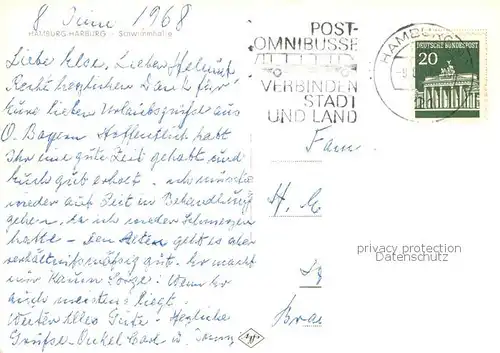 8 Juni 1968
HAMBURG-HARBURG - Schwimmhalle
Liebe Else, Lieber Helmut
Recht herzlichen Dank für
Eure lieben Urlaubsgrüße aus
O. Bayern Hoffentlich habt
Ihr eine gute Zeit gehabt und
Euch gut erholt. ich musste
wieder auf Zeit in Behandlung
gehen, da ich wieder Schmerzen
hatte - den Alten geht es aber
verhältnismäßig gut. Er macht
mir kaum Sorge! Wenn Er
auch meistens liegt.
Weiter alles Gute! Herzliche
Grüße Onkel Carl u.
POST-
OMNIBUSSE
VERBINDEN
STADT
UND LAND
HAMBURG
DEUTSCHE BUNDESPOST
20
Fam.
H.
Bra
privacy protection
Datenschutz